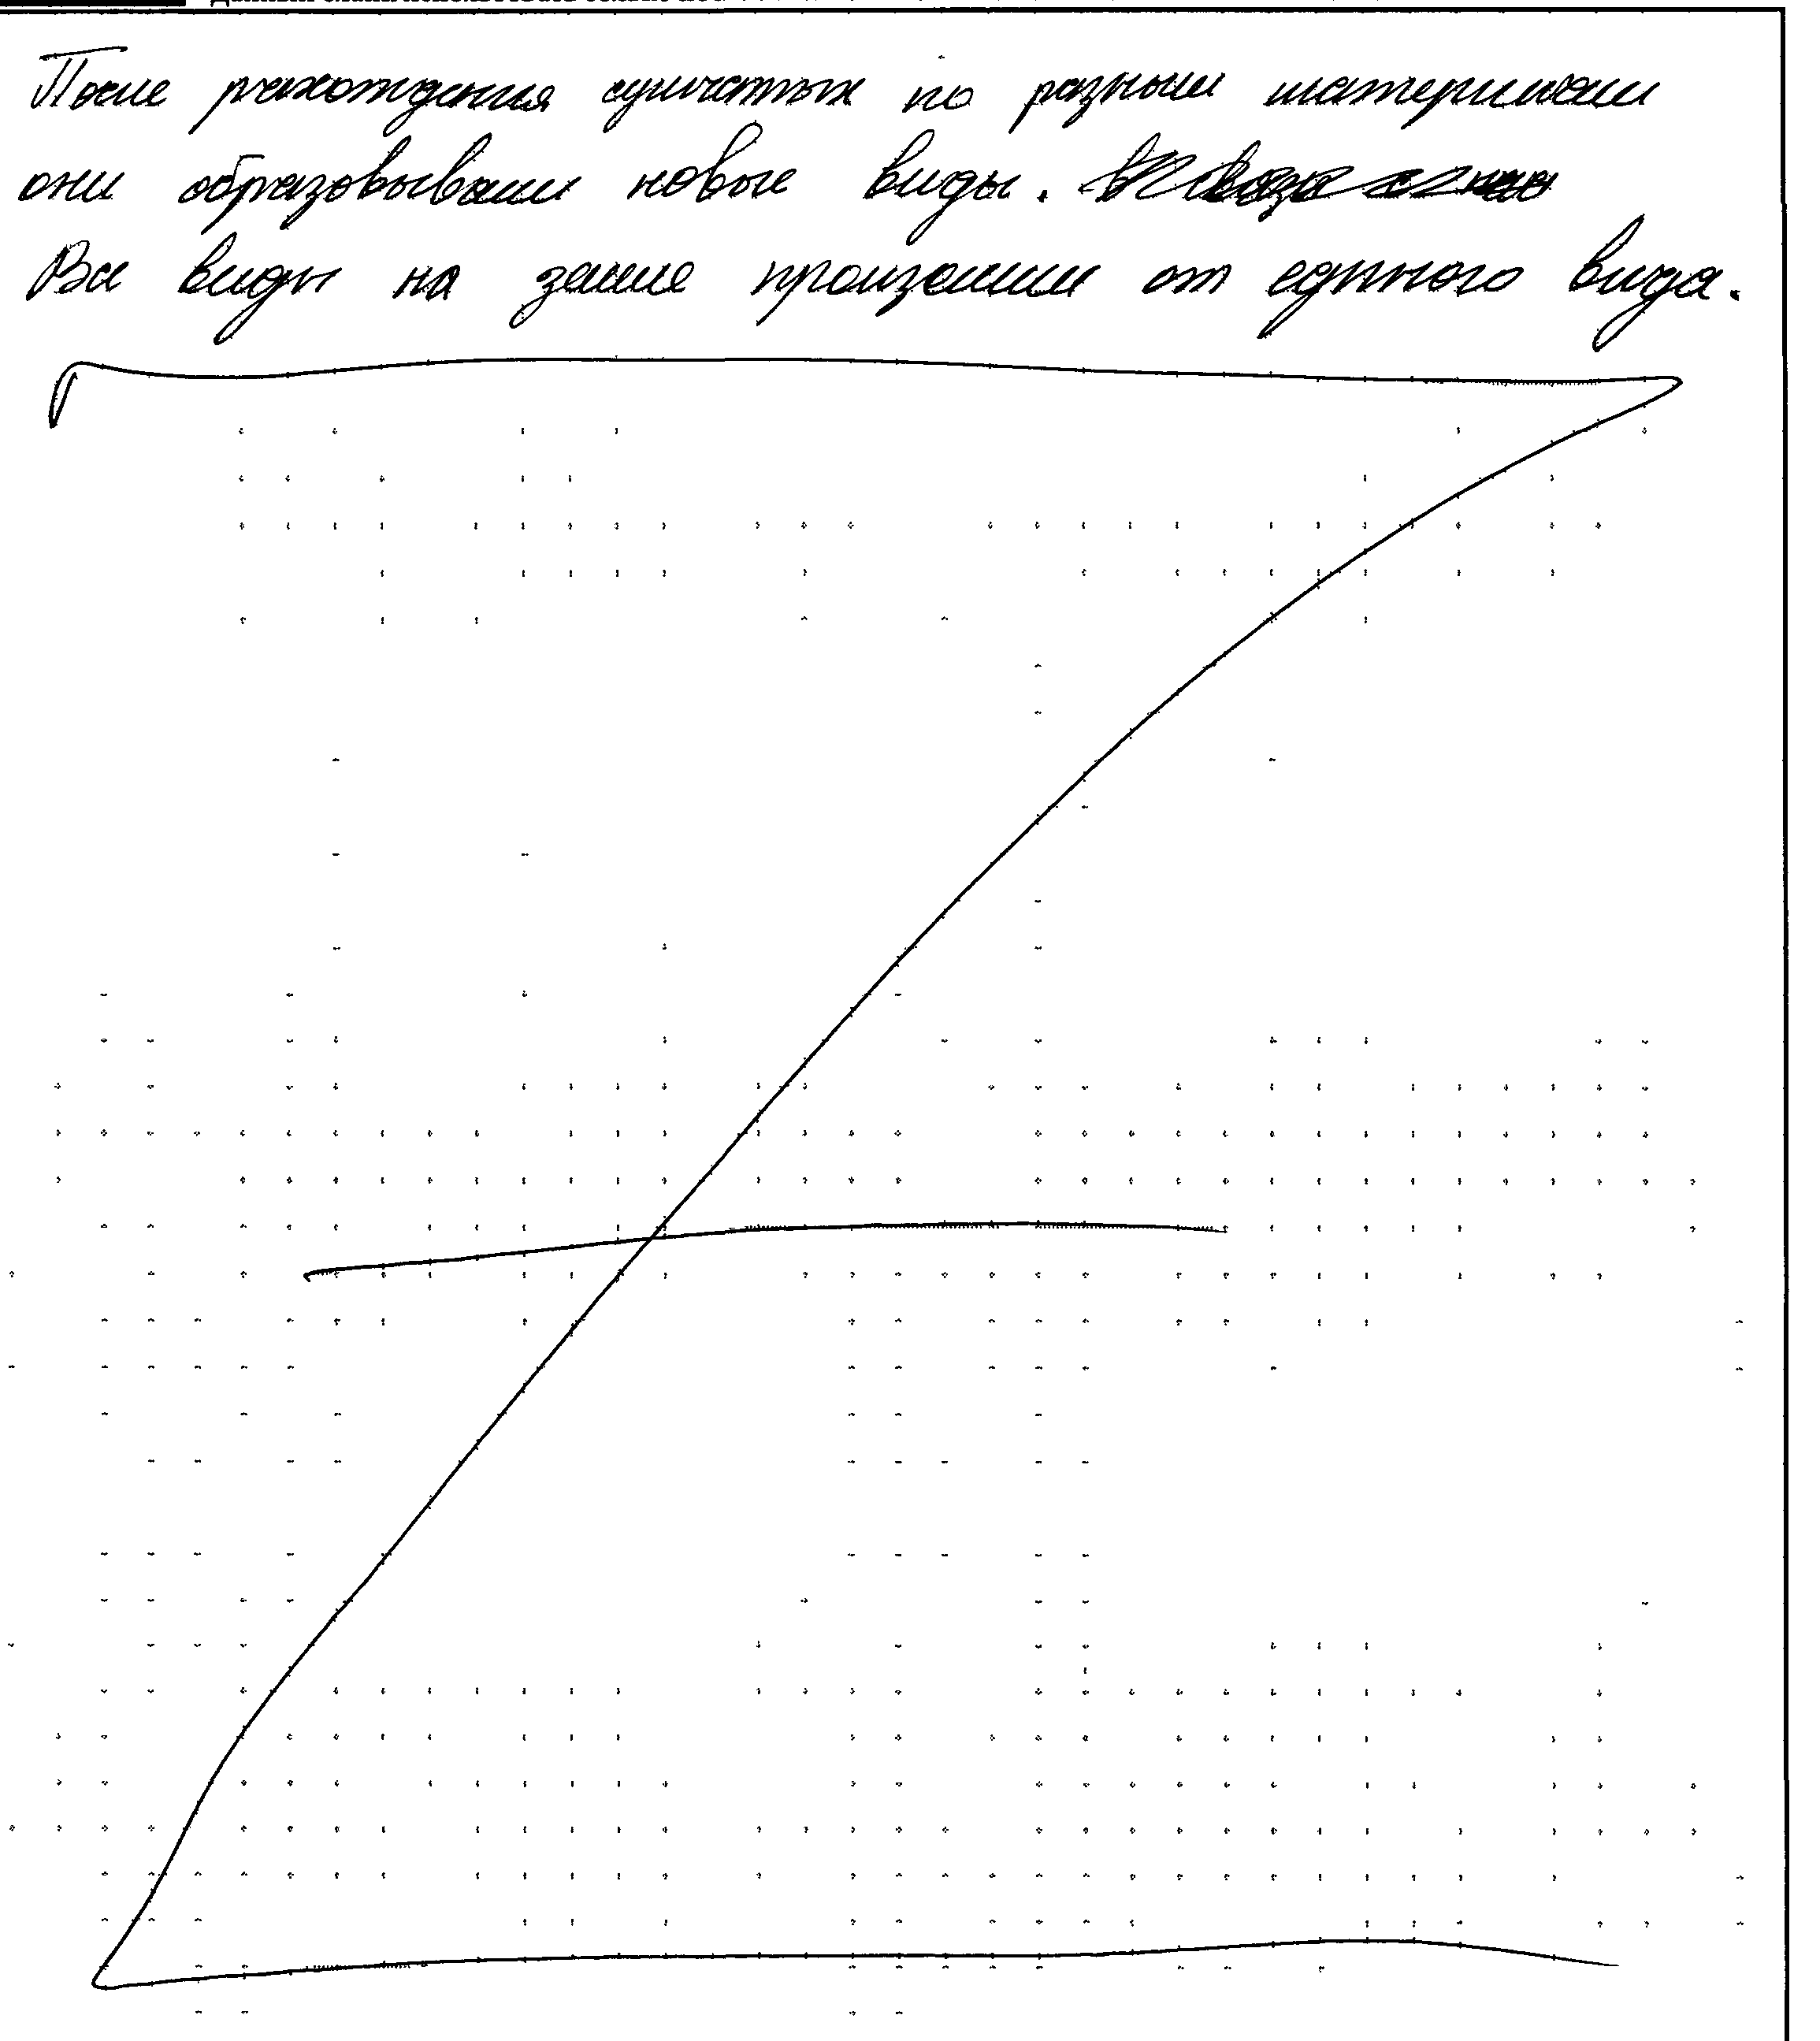 После рахождения сумчатых по разным материкам
они образовывали новые виды.
Все виды на земле произошли от единого вида.